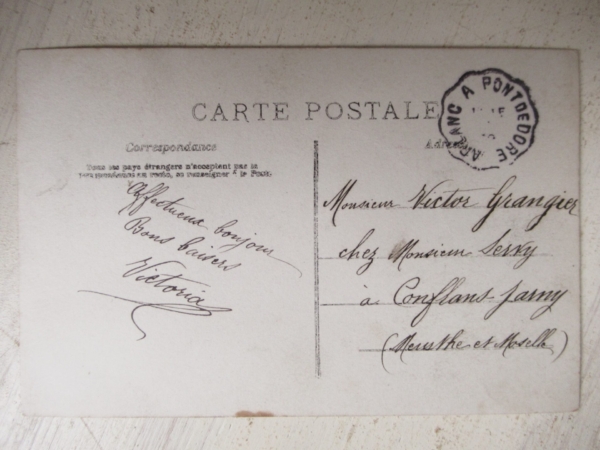 CARTE POSTALE
ARLANC A PONTDEDORE
Correspondance
Tous les pays étrangers n'acceptent pas la
correspondance au recto, se renseigner à la Poste.
Affectueux bonjour
Bons baisers
Victoria
Monsieur Victor Grangier
chez Monsieur Servy
à Conflans-Jarny
(Meurthe et Moselle)